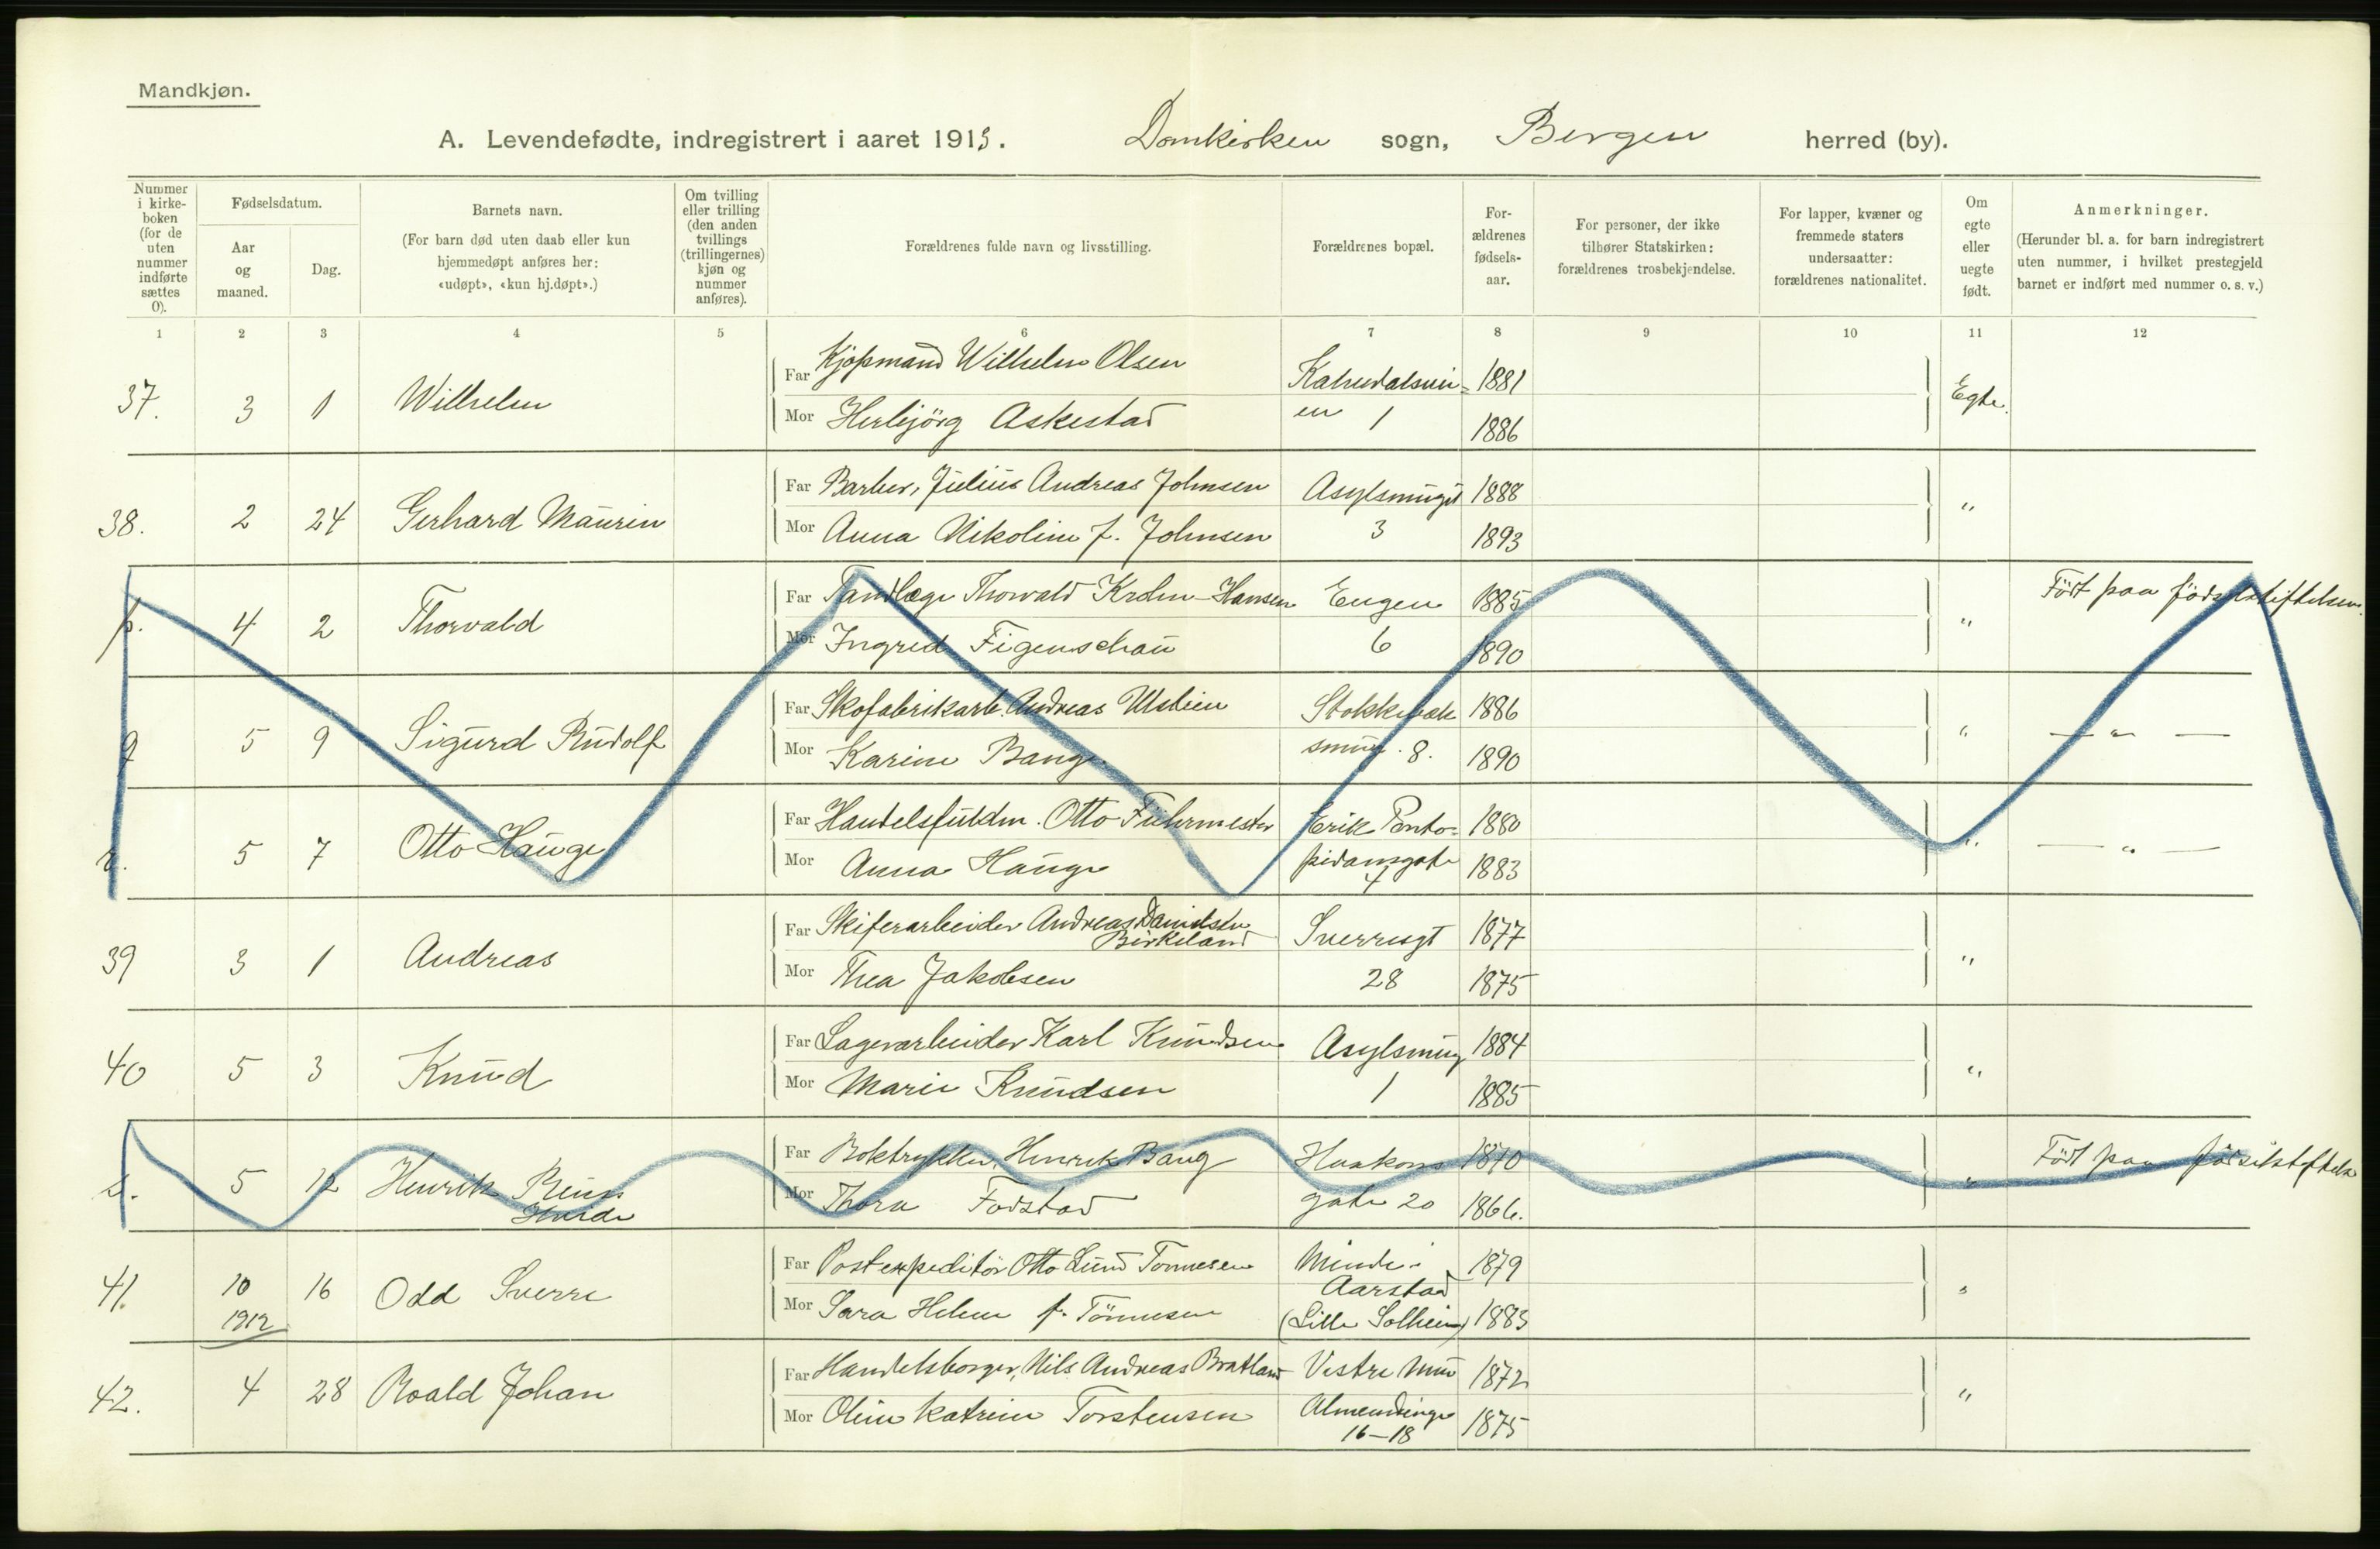 Mandkjøn.
A. Levendefødte, indregistrert i aaret 1913. Domkirken sogn, Bergen herred (by).
Nummer i kirke-boken (for de uten nummer indførte sættes 0).
Fødselsdatum.
Aar og maaned.
Dag.
Barnets navn.
(For barn død uten daab eller kun hjemmedøpt anføres her: «udøpt», «kun hj.døpt».)
Om tvilling eller trilling (den anden tvillings (trillingernes) kjøn og nummer anføres).
Forældrenes fulde navn og livsstilling.
Forældrenes bopæl.
For-ældrenes fødsels-aar.
For personer, der ikke tilhører Statskirken: forældrenes trosbekjendelse.
For lapper, kvæner og fremmede staters undersaatter: forældrenes nationalitet.
Om egte eller uegte født.
Anmerkninger.
(Herunder bl. a. for barn indregistrert uten nummer, i hvilket prestegjeld barnet er indført med nummer o. s. v.)
1 2 3 4 5 6 7 8 9 10 11 12
37. 3 1 Wilhelm Far Kjøpmand Wilhelm Olsen Kalvedalsvei= 1881 Egte.
Mor Herbjörg Askestad en 1 1886
38. 2 24 Gerhard Maurin Far Barber, Julius Andreas Johnsen Asylsmuget 1888 "
Mor Anna Nikoline f. Johnsen 3 1893
p. 4 2 Thorvald Far Tandlæge Thorvald Krohn-Hansen Engen 1885 " Födt paa födselsstiftelsen.
Mor Ingrid Figenschau 6 1890
q 5 9 Sigurd Rudolf Far Skofabrikarb. Andreas Ulstein Stokkebæk 1886 " — " —
Mor Karine Bange smug. 8. 1890
r. 5 7 Otto Hauge Far Handelsfuldm. Otto Führmester Erik Ponto= 1880 " — " —
Mor Anna Hauge pidansgate 4 1883
39 3 1 Andreas Far Skiferarbeider Andreas Danielsen Birkeland Sverresgt 1877 "
Mor Thea Jakobsen 28 1875
40 5 3 Knud Far Lagerarbeider Karl Knudsen Asylsmug 1884 "
Mor Marie Knudsen 1 1885
s. 5 12 Henrik Far Boktrykker, Henrik Bang Haakons 1870 " Födt paa födselsstiftelse
Mor Thora Fodstad gate 20 1866.
41. 10 16 Odd Sverre Far Postexpeditör Otto Lund Tonnesen Minde i 1879 "
1912 Mor Sara Helene f. Tönnesen Aarstad (Lille Solheim) 1883
42. 4 28 Roald Johan Far Handelsborger, Nils Andreas Bratland Vestre Mur 1872 "
Mor Oline Katrine Torstensen Almendinge 16-18 1875